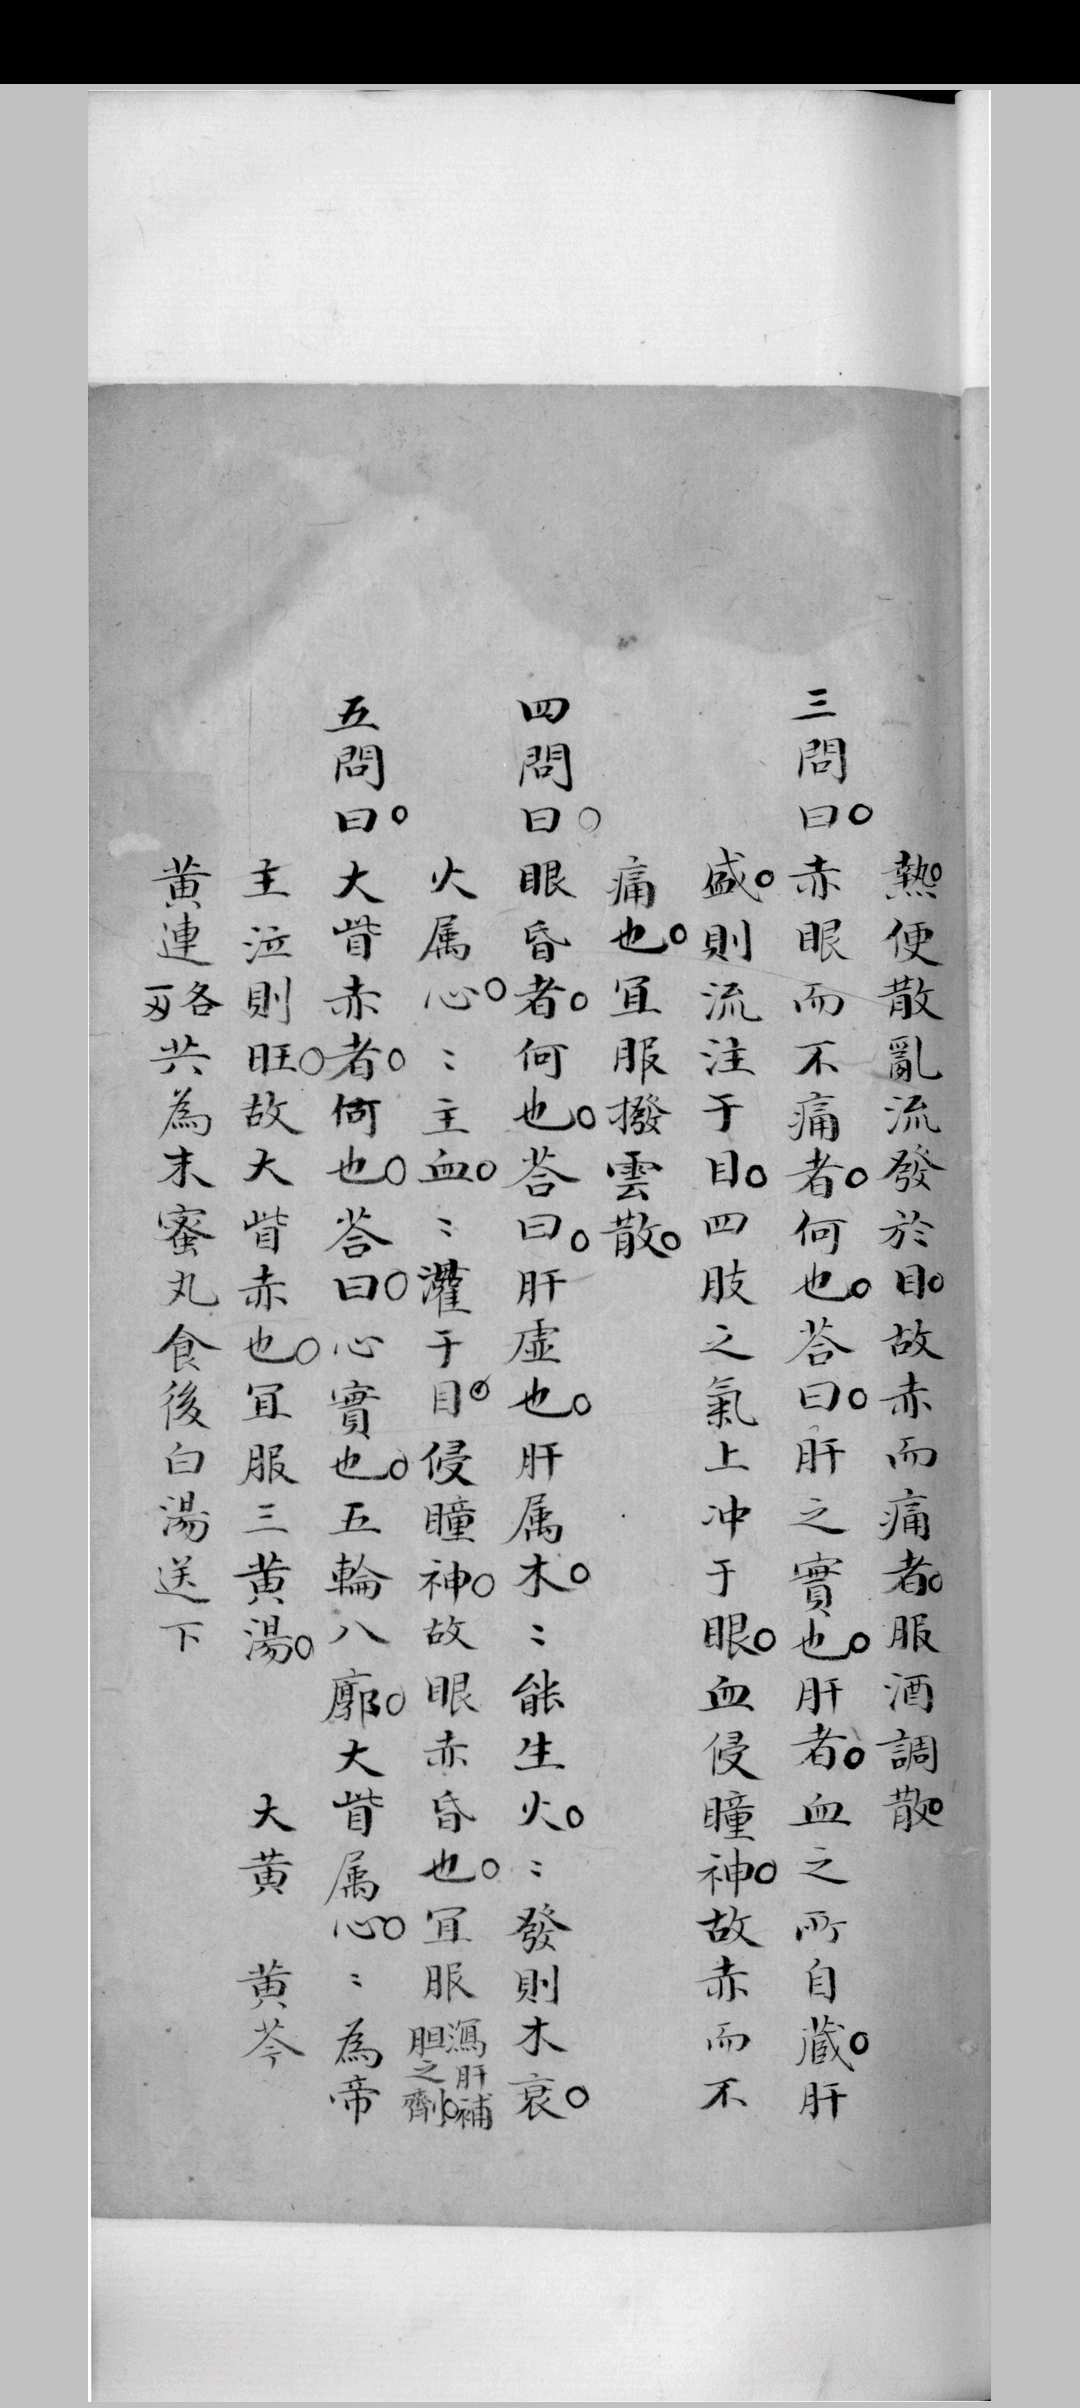 熱。便散亂流發於目。故赤而痛者。服酒調散。
三問曰。赤眼而不痛者。何也。荅曰。肝之實也。肝者。血之所自藏。肝
盛。則流注于目。四肢之氣上冲于眼。血侵瞳神。故赤而不
痛也。宜服撥雲散。
四問曰。眼昏者。何也。荅曰。肝虛也。肝属木。〻能生火。〻發則木衰。
火属心。〻主血。〻灌于目。侵瞳神。故眼赤昏也。宜服瀉肝補胆之劑。
五問曰。大眥赤者。何也。荅曰。心實也。五輪八廓。大眥属心。〻為帝
主泣則旺。故大眥赤也。宜服三黄湯。 大黄 黄芩
黄連各一两共為末蜜丸食後白湯送下